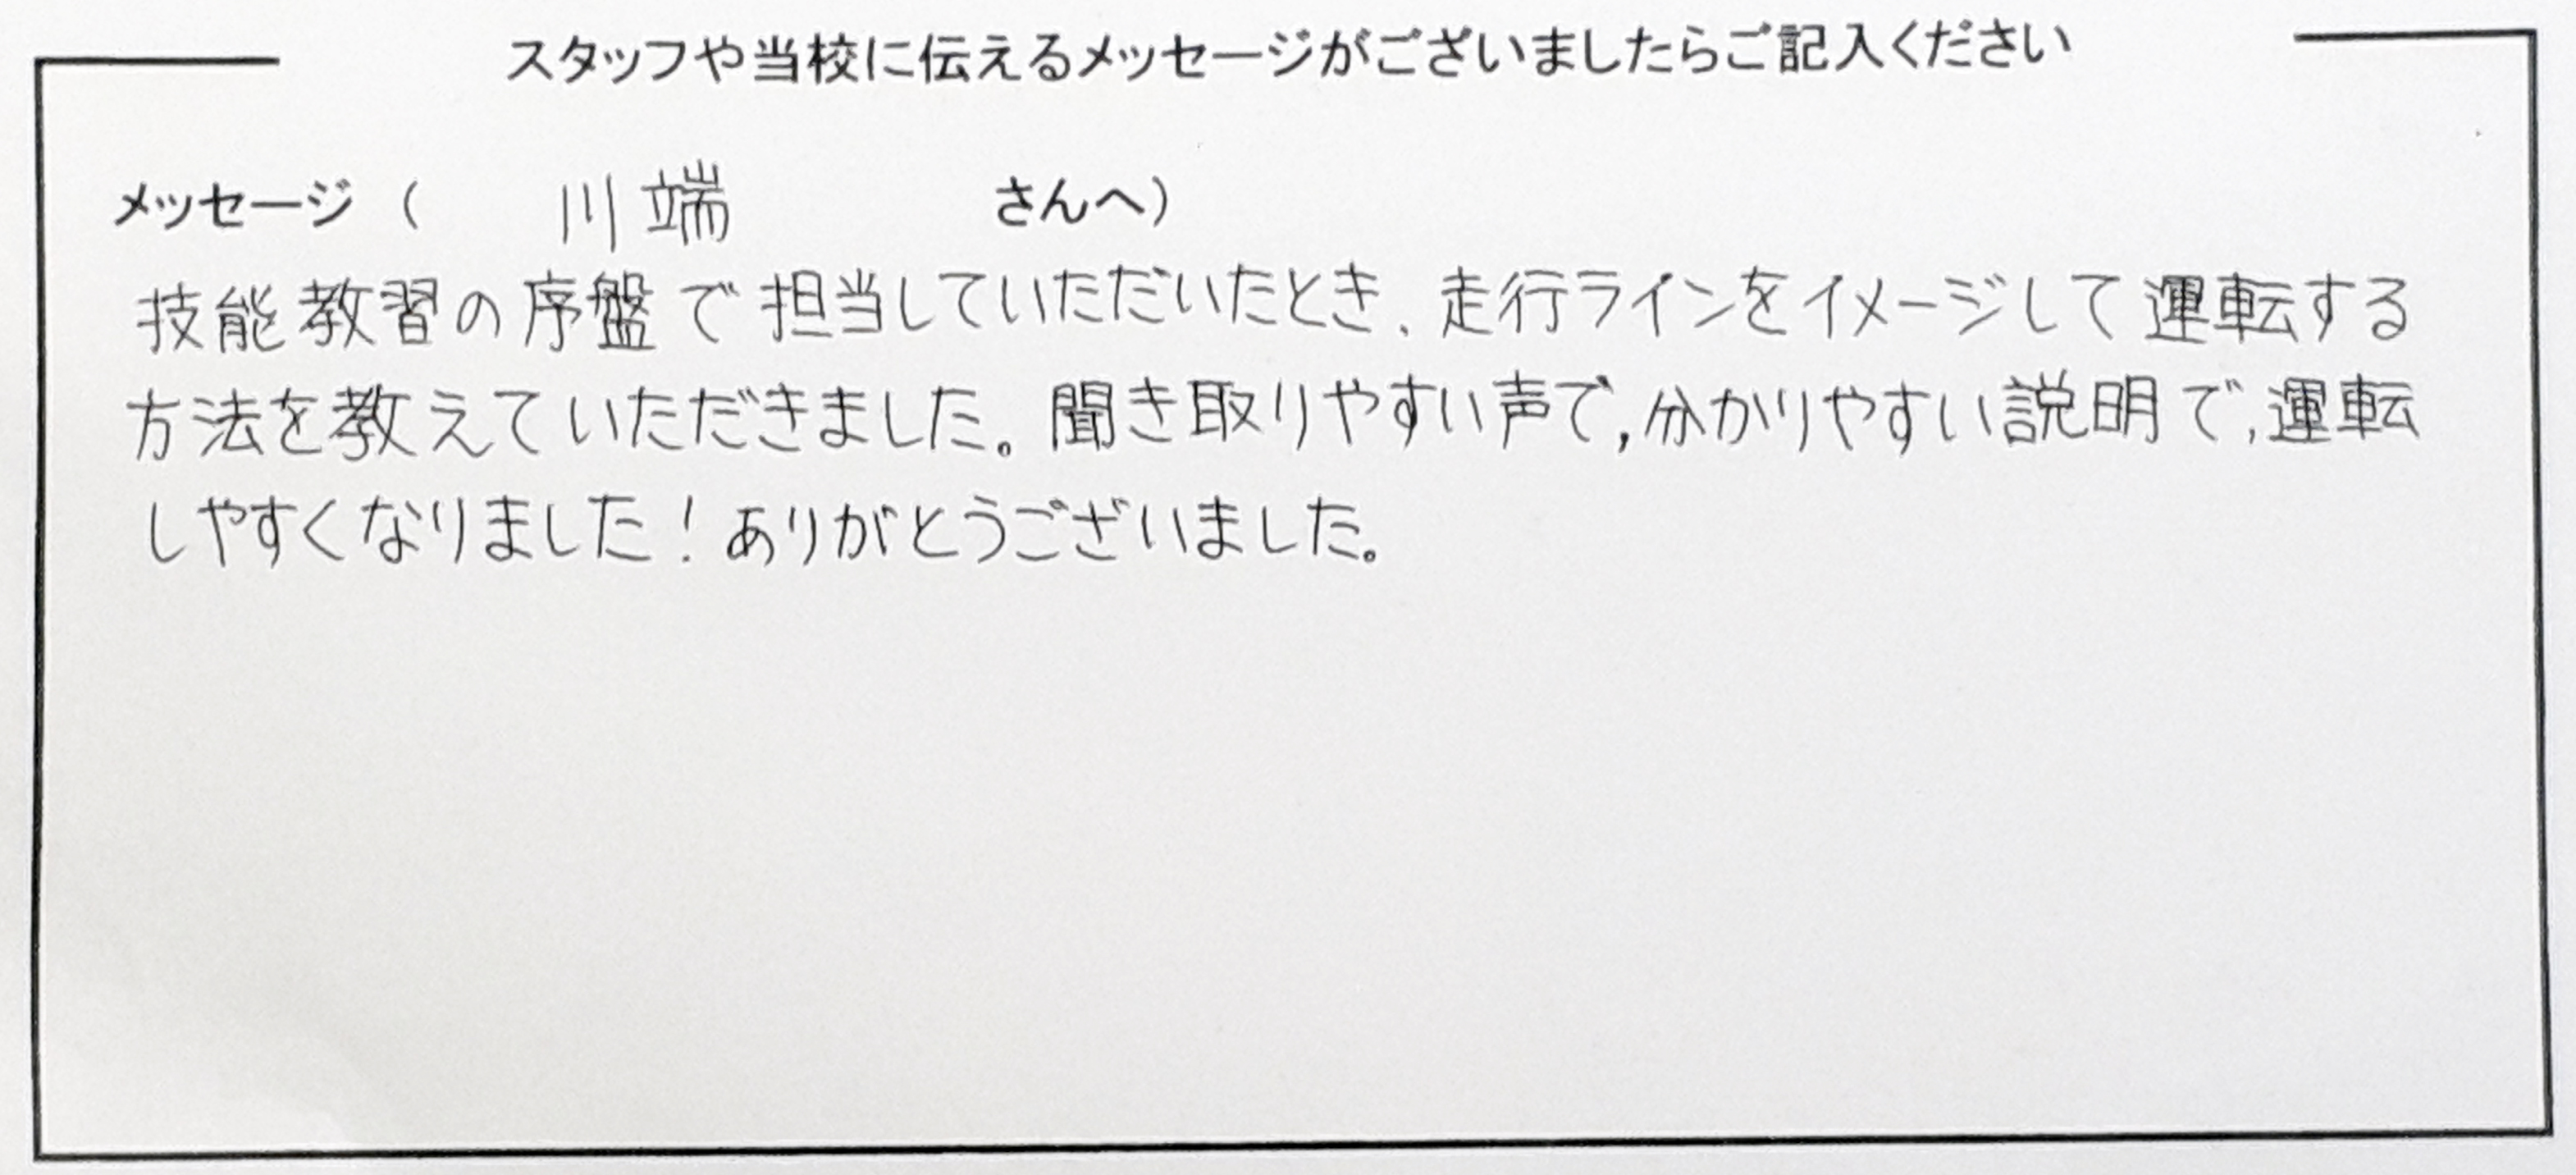 スタッフや当校に伝えるメッセージがございましたらご記入ください
メッセージ（ 川端 さんへ）
技能教習の序盤で担当していただいたとき、走行ラインをイメージして運転する
方法を教えていただきました。聞き取りやすい声で,分かりやすい説明で,運転
しやすくなりました！ありがとうございました。